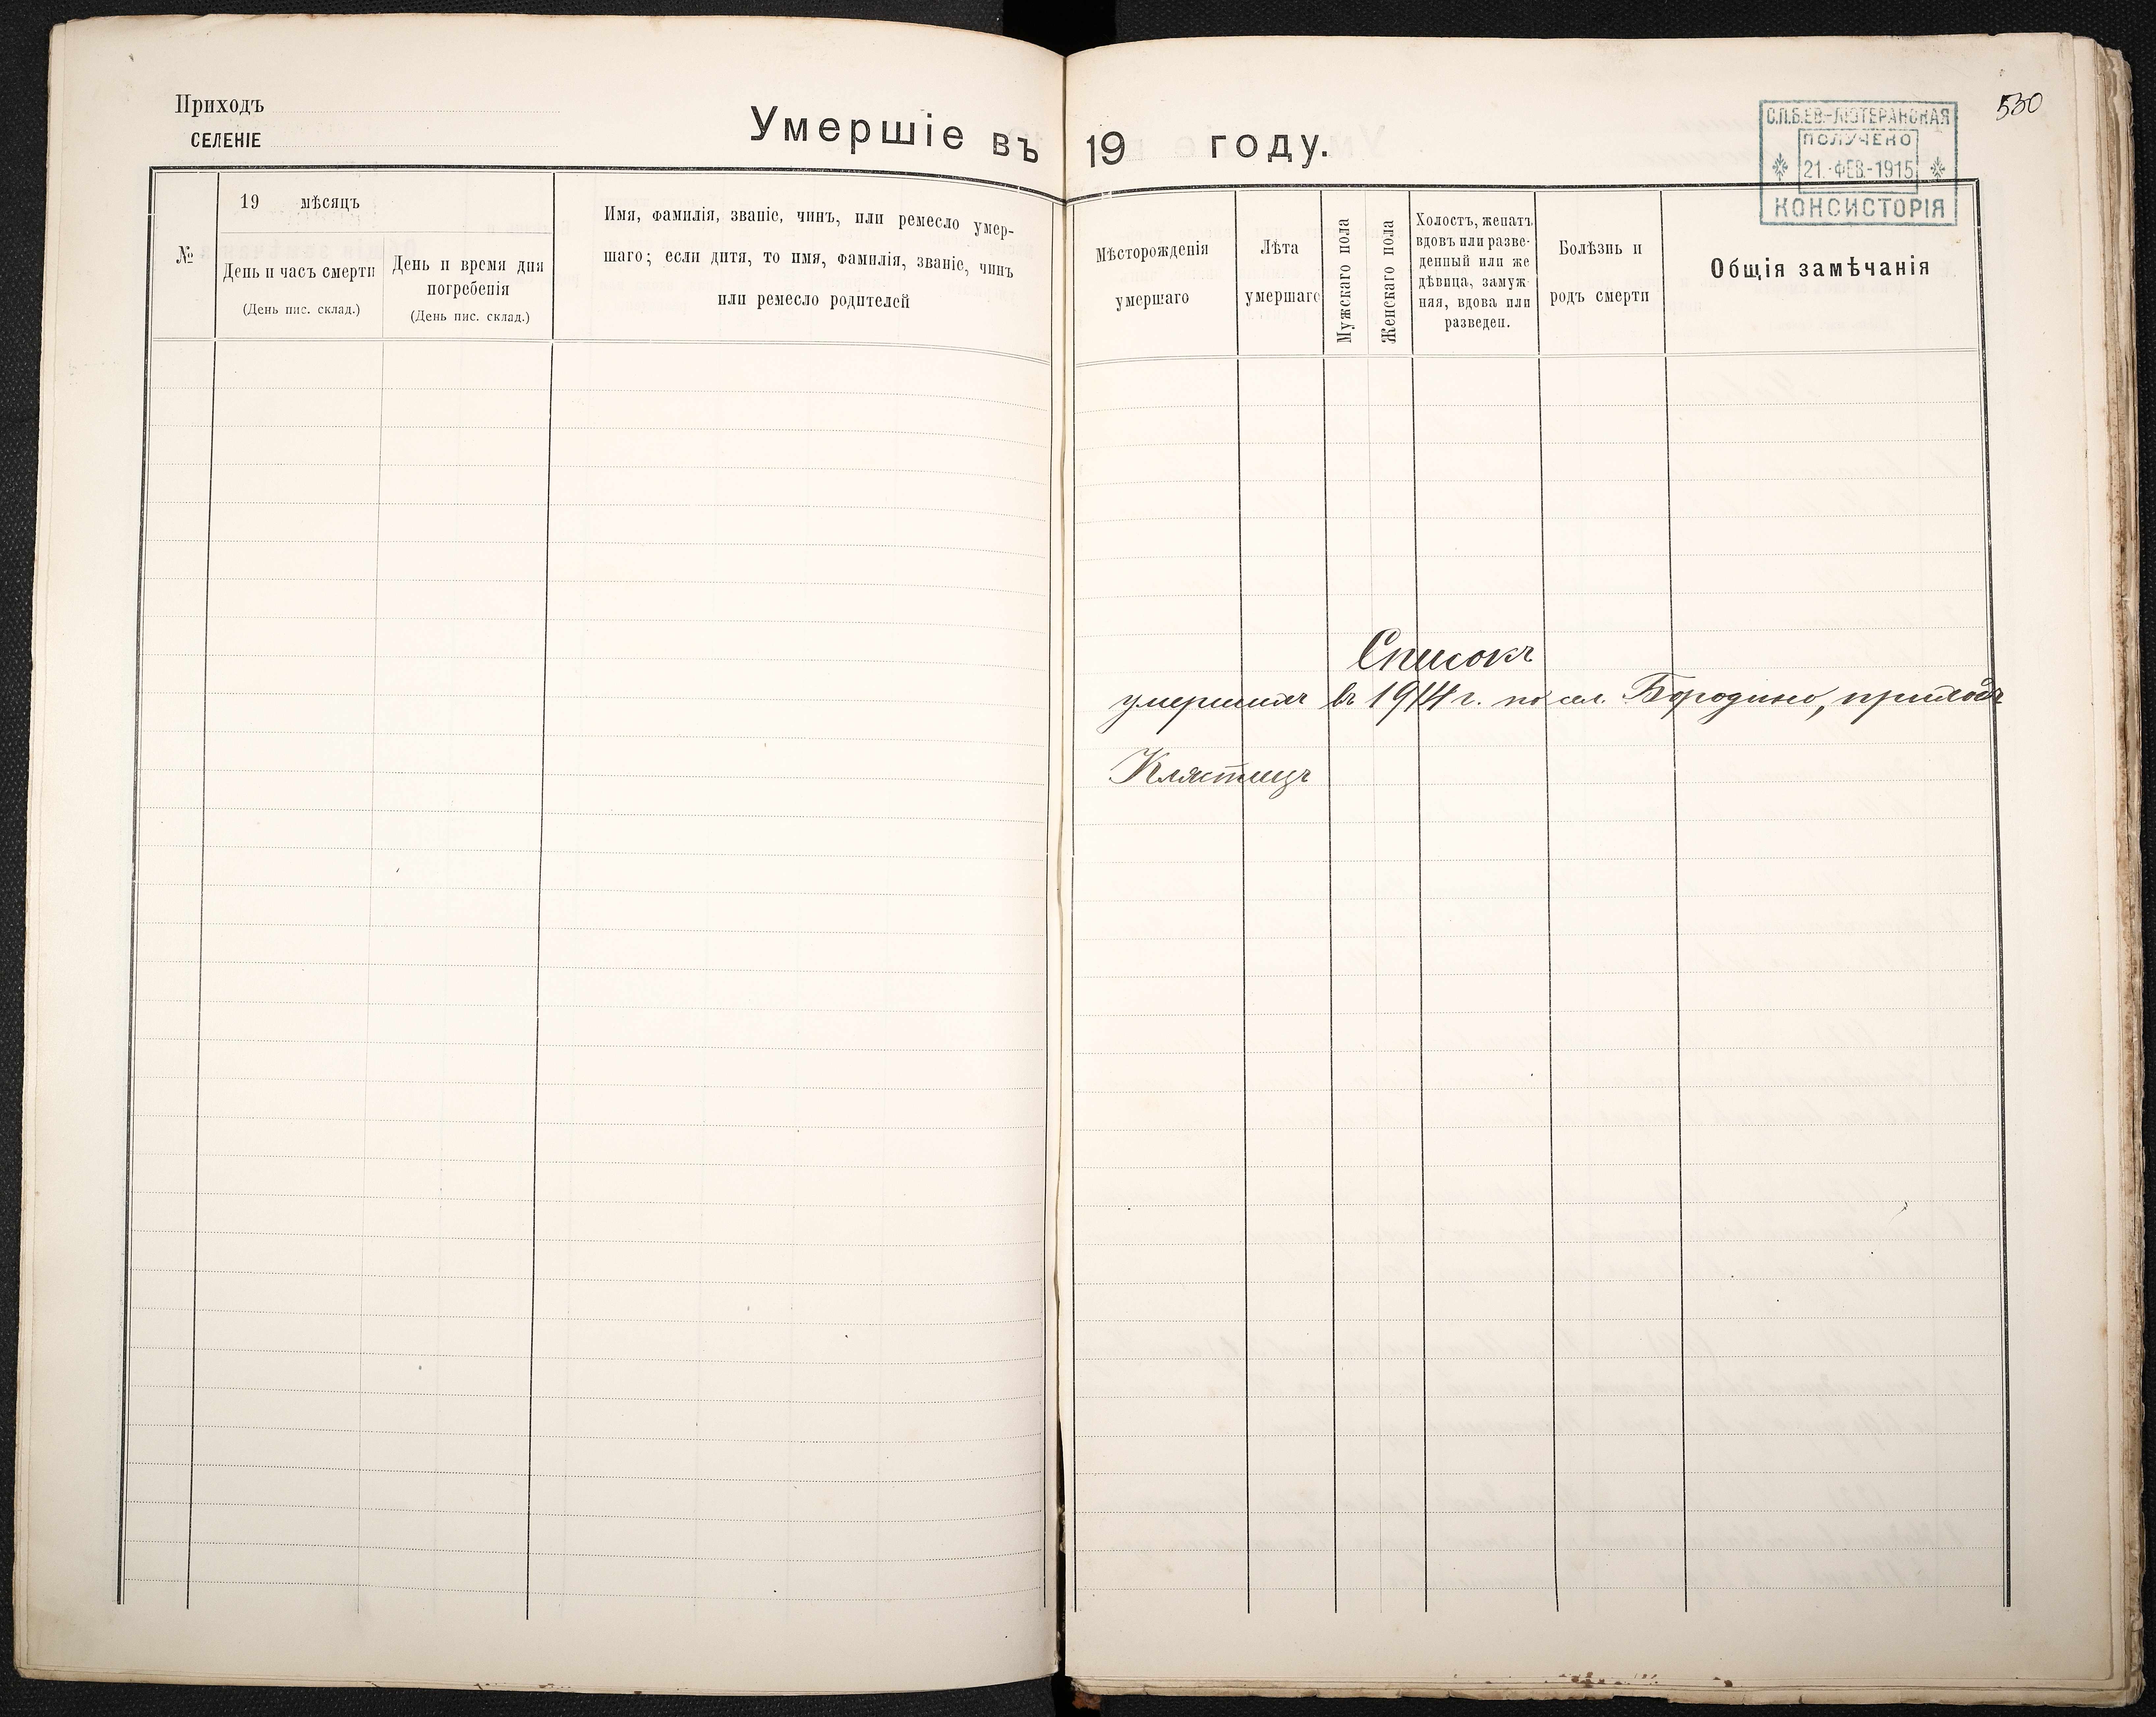 Приходъ
СЕЛЕНІЕ
Умершіе въ 19 году.
530
С.П.Б.ЕВ.-ЛЮТЕРАНСКАЯ
ПОЛУЧЕНО
21.-ФЕВ.-1915
КОНСИСТОРІЯ
№
19 мѣсяцъ
День и часъ смерти
(День пис. склад.)
День и время дня
погребенія
(День пис. склад.)
Имя, фамилія, званіе, чинъ, или ремесло умер-
шаго; если дитя, то имя, фамилія, званіе, чинъ
или ремесло родителей
Мѣсторожденія
умершаго
Лѣта
умершаго
Мужскаго пола
Женскаго пола
Холостъ, женатъ
вдовъ или разве-
денный или же
дѣвица, замуж-
няя, вдова или
разведен.
Болѣзнь и
родъ смерти
Общія замѣчанія
Списокъ
умершихъ въ 1914 г. по сел. Бородино, приходъ
Клястицъ